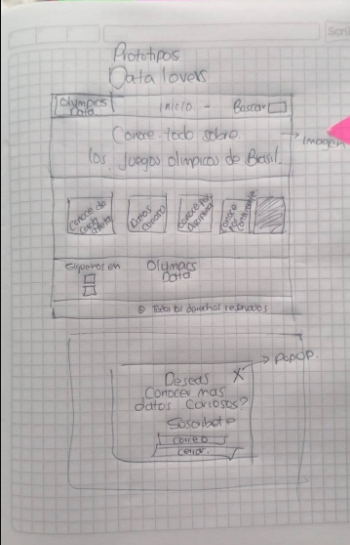 Scri
Prototipos
Data lovers
Olympics
Data
inicio - Buscar
Conoce todo sobre
los Juegos olimpicos de Brasil
imagen
Conoce de
cada
atleta
Datos
Curiosos
Conoce por
Disciplina
Conoce
por
Continente
Siguenos en
Olymacs
Data
© Todos los derechos reservados
POPUP.
X
Deseas
Conocer mas
datos Curiosos?
Suscribete
correo
cerrar